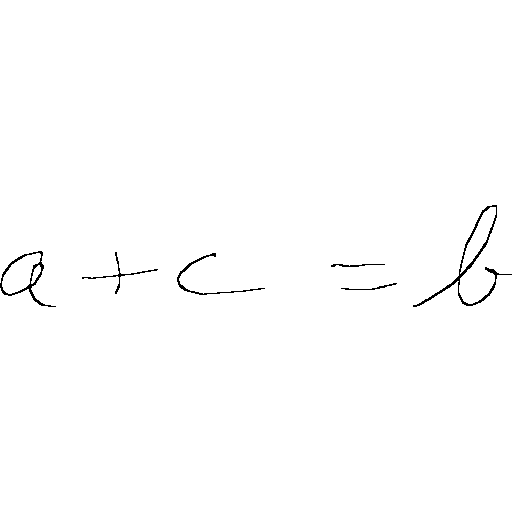 a + c = b